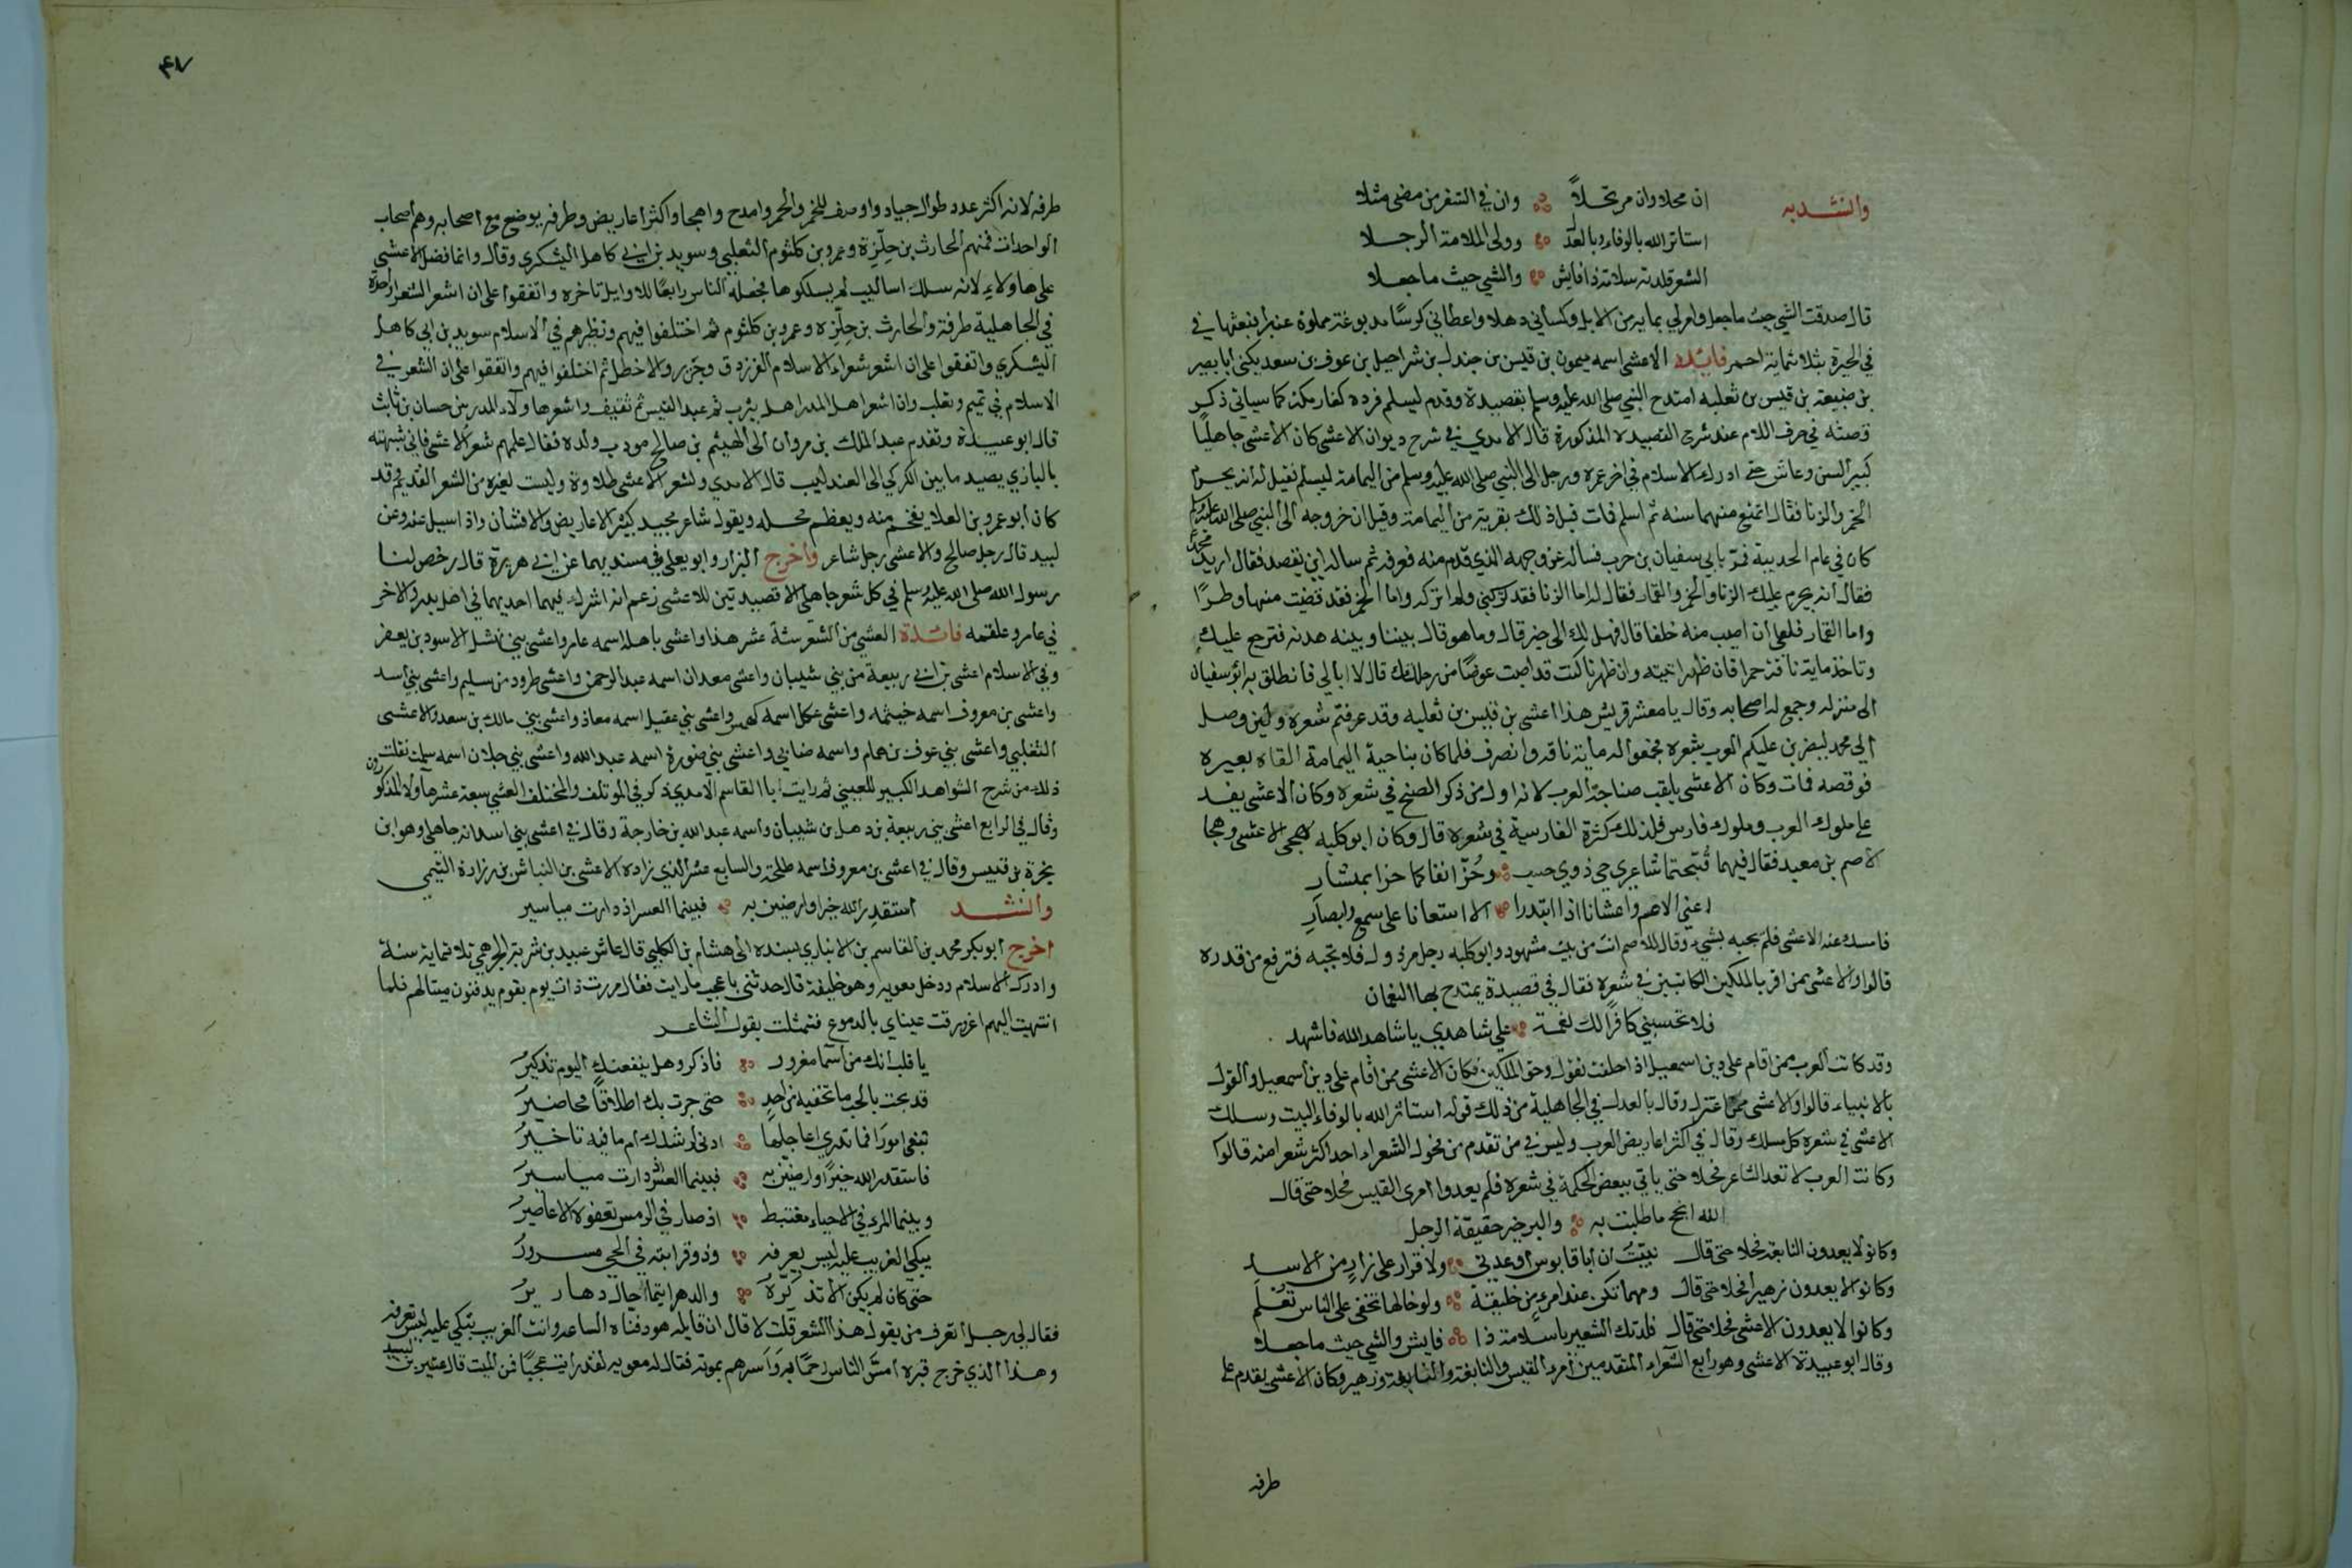 وانشد به ان محلا وان مرتحلاً وان في السفر من مضى مثلا
استاثر الله بالوفاء وبالعدل وولى الملامة الرجلا
الشعر قلدته سلامة ذا فايش والشي حيث ماجعلا
قال صدقت الشي حيث ماجعل وامر لي بماية من الابل وكساني حللا واعطاني كرشًا مدبوغة مملوة عنبرا فبعتها في
في الحيرة بثلاثماية احمر فايدة الاعشى اسمه ميمون بن قيس بن جندل بن شراحيل بن عوف بن سعد يكنى ابا بصير
بن ضبيعة بن قيس بن ثعلبه امتدح النبي صلى الله عليه وسلم بقصيدة وقدم ليسلم فرده كفار مكة كما سياتي ذكر
قصته في حرف اللام عند شرح القصيدة المذكورة قال الامدي في شرح ديوان الاعشى كان الاعشى جاهليًا
كبير السن وعاش حتى ادرك الاسلام في اخر عمره ورحل الى النبي صلى الله عليه وسلم من اليمامة ليسلم فقيل له انه يحرم
الخمر والزنا فقال اتمتع منهما سنه ثم اسلم فمات قبل ذلك بقرية من اليمامة وقيل ان خروجه الى النبي صلى الله عليه وسلم
كان في عام الحديبية فمر بابي سفيان بن حرب فساله عن وجهه الذي قدم منه فعرفه ثم ساله اين يقصد فقال اريد محمد
فقال انه يحرم عليك الزنا والخمر والقمار فقال له اما الزنا فقد تركني ولم اتركه واما الخمر فقد قضيت منها وطرًا
واما القمار فلعلي ان اصيب منه خلفا قال فهل لك الى خير قال وما هو قال بيننا وبينه هدنه فترجع عليك
وتاخذ ماية ناقة حمرا فان ظهر اتيته وان ظهرنا كنت قد اصبت عوضًا من رحلتك قال لا ابالي فانطلق به ابو سفيان
الى منزله وجمع له اصحابه وقال يا معشر قريش هذا اعشى بن قيس بن ثعلبه وقد عرفتم شعره ولين وصل
الى محمد ليضربن عليكم العرب بشعره فجمعوا له ماية ناقه وانصرف فلما كان بناحية اليمامة القاه بعيره
فوقصه فمات وكان الاعشى يلقب صناجة العرب لانه اول من ذكر الصنج في شعره وكان الاعشى يفد
على ملوك العرب وملوك فارس فلذلك كثرة الفارسية في شعره قال وكان ابو كلبه هجى الاعشى وهجا
الاصم بن معبد فقال فيهما قُبّحتما شاعري حي ذوي حسب وحُزّ انفاكما حزا بمنشار
اعني الاصم واعشانا اذا ابتدرا الا استعانا على سمع وابصارِ
فامسك عنه الاعشى فلم يجبه بشي وقال للاصم انت من بيت مشهود وابو كلبه رجل مرذول فلا تجبه فترفع من قدره
قالوا والاعشى ممن اقر بالملكين الكاتبين في شعره فقال في قصيدة يمتدح بها النعمان
فلا تحسبني كافرًا لك نعمة علي شاهدي يا شاهد الله فاشهد
وقد كانت العرب ممن اقام على دين اسمعيل اذا حلفت تقول وحق الملكين فكان الاعشى ممن اقام على دين اسمعيل والقول
بالانبياء قالوا والاعشى ممن اعتزل وقال بالعدل في الجاهلية من ذلك قوله استاثر الله بالوفاء البيت وسلك
الاعشى في شعره كل مسلك وقال في اكثر اعاريض العرب وليس في من تقدم من فحول الشعراء احد اكثر شعرا منه قالوا
وكانت العرب لا تعد الشاعر فحلا حتى ياتي ببعض الحكمة في شعره فلم يعدوا امرى القيس فحلا حتى قال
الله انجح ما طلبت به والبر خير حقيقة الرحل
وكانوا لا يعدون النابغة فحلا حتى قال نبيّتُ ان ابا قابوس اوعدني ولا قرار على زارٍ من الاسد
وكانوا لا يعدون زهيرا فحلا حتى قال ومهما تكن عند امرءٍ من خليقة ولو خالها تخفى على الناس تُعْلَمِ
وكانوا لا يعدون الاعشى فحلا حتى قال قلدتك الشعر يا سلامة ذا فايش والشي حيث ماجعلا
وقال ابو عبيدة الاعشى وهو رابع الشعراء المتقدمين امرء القيس والنابغة والنابغة وزهير وكان الاعشى يقدم على
طرفه
٤٧
طرفه لانه اكثر عدد طوال جياد واوصف للخمر والحمر وامدح واهجا واكثر اعاريض وطرفه يوضع مع اصحابه وهم اصحاب
الواحدات فمنهم الحارث بن حِلِّزة وعمرو بن كلثوم التغلبي وسويد بن ابي كاهل اليشكري وقال وانما فضل الاعشى
على هاولاء لانه سلك اساليب لم يسلكوها فجعله الناس رابعًا للاوايل تاخره واتفقوا على ان اشعر الشعرا واحدة
في الجاهلية طرفة والحارث بن حِلِّزه وعمرو بن كلثوم ثم اختلفوا فيهم ونظيرهم في الاسلام سويد بن ابي كاهل
اليشكري واتفقوا على ان اشعر شعراء الاسلام الفرزدق وجَرِير والاخطل ثم اختلفوا فيهم واتفقوا على ان الشعر في
الاسلام في تميم وتغلب وان اشعر اهل المدر اهل يثرب ثم عبد القيس ثم ثقيف واشعر هاولاء المدريين حسان بن ثابت
قال ابو عبيدة وتقدم عبد الملك بن مروان الى الهيثم بن صالح مودب ولده فقال علمهم شعر الاعشى فاني شبهته
بالبازي يصيد ما بين الكركي الى العندليب قال الامدي ولشعر الاعشى طلاوة وليست لغيره من الشعر القديم وقد
كان ابو عمرو بن العلا يفخم منه ويعظم محله ويقول شاعر مجيد كثير الاعاريض والافتنان واذا سيل عنه وعن
لبيد قال رجل صالح والاعشى رجل شاعر واخرج البزار وابو يعلى في مسنديهما عن ابي هريرة قال رخص لنا
رسول الله صلى الله عليه وسلم في كل شعر جاهلي الا قصيدتين للاعشى زعم انه اشرك فيهما احديهما في اهل بدر والاخر
في عامر وعلقمه فائدة العشي من الشعر ستة عشر هذا واعشى باهلة اسمه عامر واعشى بني نهشل الاسود بن يعفر
وفي الاسلام اعشى بن ابي ربيعة من بني شيبان واعشى همدان اسمه عبد الرحمن واعشى طرود من سليم واعشى بني اسد
واعشى بن معروف اسمه خيثمه واعشى عكل اسمه كهمس واعشى بني عقيل اسمه معاذ واعشى بني مالك بن سعد والاعشى
التغلبي واعشى بني عوف بن همام واسمه ضابي واعشى بني ضنورة اسمه عبد الله واعشى بني جلان اسمه سلمة نقلت
ذلك من شرح الشواهد الكبير للعيني ثم رايت ابا القاسم الامدي ذكر في الموتلف والمختلف العشي سبعة عشر هاولاء المذكورون
وقال في الرابع اعشى بني ربيعة بن ذهل بن شيبان واسمه عبد الله بن خارجة وقال في اعشى بني اسد انه جاهلي وهو ابن
بجرة بن قيس وقال في اعشى بن معروف اسمه طلحة والسابع عشر الذي زاده الاعشى بن النباش بن زرارة التيمي
وانشد استقدِرِ الله خيرا وارضين به فبينما العسر اذ دارت مياسير
اخرج ابو بكر محمد بن القاسم بن الانباري بسنده الى هشام بن الكلبي قال عاش عبيد بن شرية الجرهمي ثلاثماية سنة
وادرك الاسلام ودخل معويه وهو خليفة قال حدثني باعجب ما رايت فقال مررت ذات يوم بقوم يدفنون ميتا لهم فلما
انتهيت اليهم اغرورقت عيناي بالدموع فتمثلت بقول الشاعر
يا قلب انك من اسما مغرور فاذكر وهل ينفعنك اليوم تذكيرُ
قد بحت بالحب ما تخفيه من احدٍ حتى جرت بك اطلاقًا محاضيرُ
تبغي امورًا فما تدري اعاجلها ادنى لرشدك ام ما فيه تاخيرُ
فاستقدر الله خيرًا وارضينّ به فبينما العسر اذ دارت مياسيرُ
وبينما المرء في الاحياء مغتبط اذ صار في الرمس تعفوه الاعاصيرُ
يبكي الغريب عليه ليس يعرفه وذو قرابته في الحي مسرورُ
حتى كان لم يكن الا تذكّرهُ والدهر ايتما احال دهاريرُ
فقال لي رجل اتعرف من يقول هذا الشعر قلت لا قال ان قايله هو دفناه الساعه وانت الغريب تبكي عليه ليس تعرفه
وهذا الذي خرج قبره امسّ الناس رحمًا به واسرهم بموته فقال له معويه لقد رايت عجبًا فمن الميت قال عثير بن لبيد